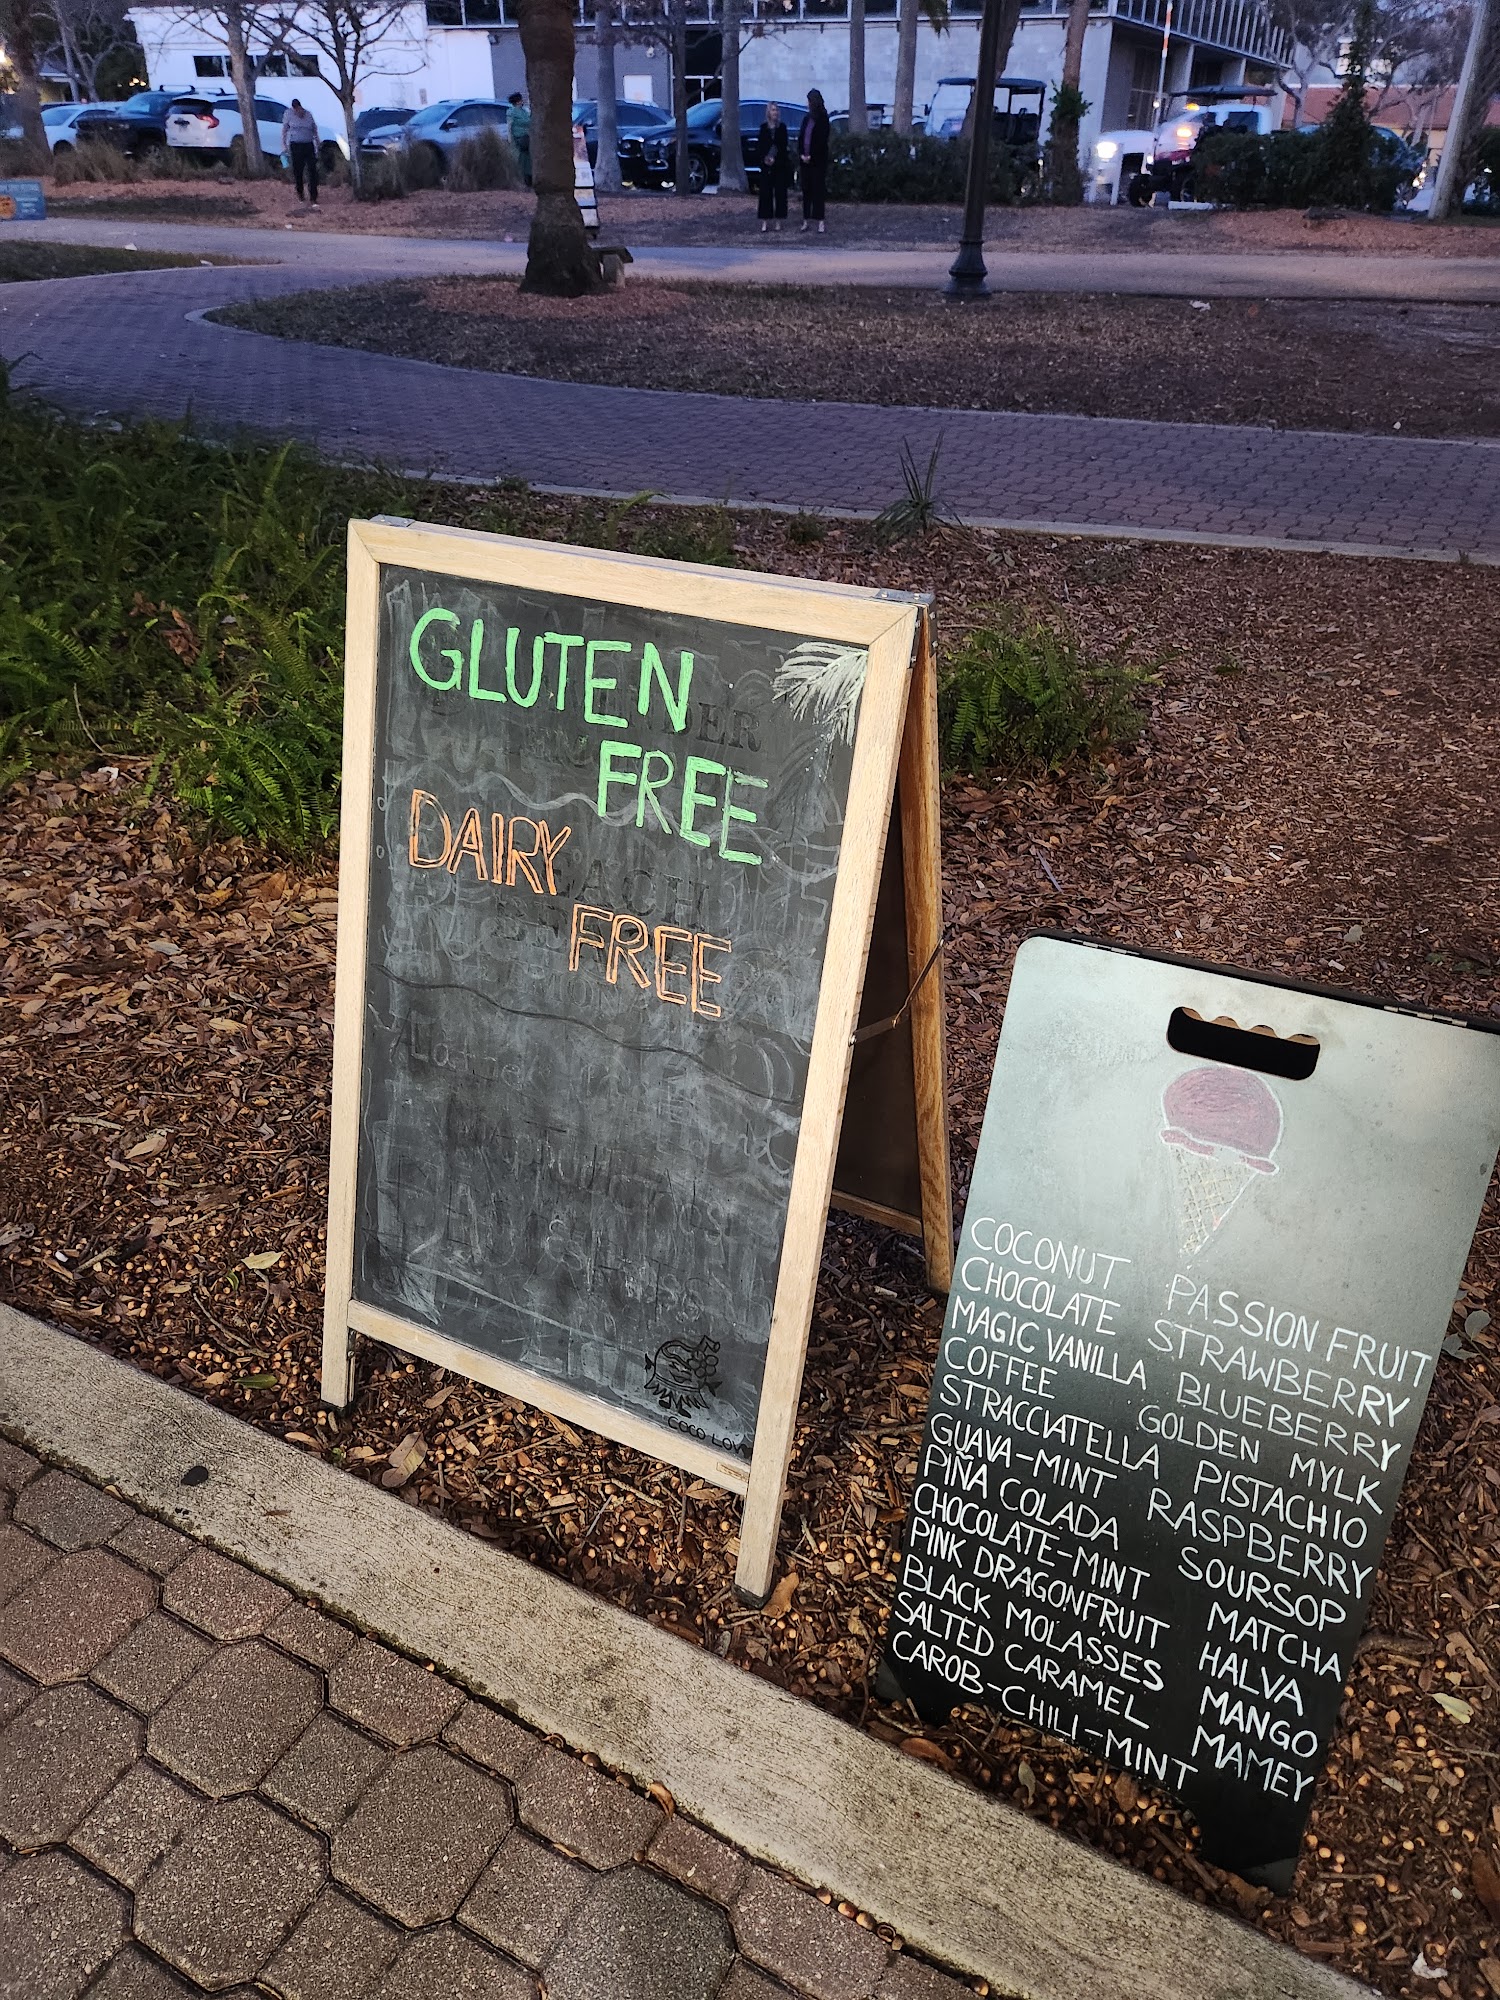 GLUTEN
FREE
DAIRY
FREE
COCO LOV
COCONUT
CHOCOLATE
MAGIC VANILLA
COFFEE
STRACCIATELLA
GUAVA-MINT
PIÑA COLADA
CHOCOLATE-MINT
PINK DRAGONFRUIT
BLACK MOLASSES
SALTED CARAMEL
CAROB-CHILI-MINT
PASSION FRUIT
STRAWBERRY
BLUEBERRY
GOLDEN MYLK
PISTACHIO
RASPBERRY
SOURSOP
MATCHA
HALVA
MANGO
MAMEY